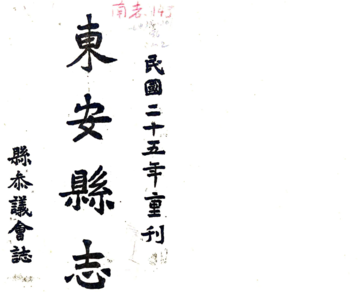 民國二十五年重刊
東安縣志
縣參議會誌